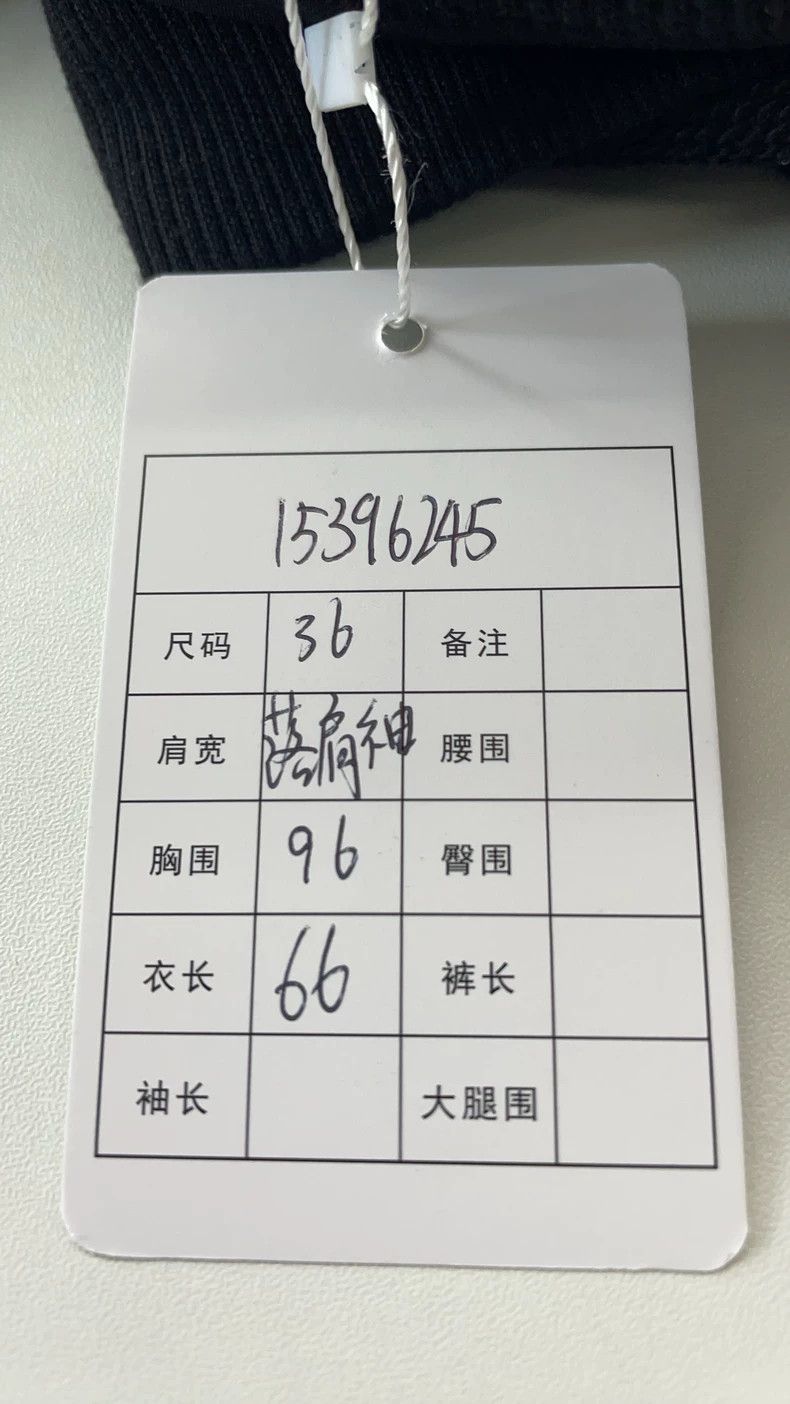 15396245
尺码 36 备注
肩宽 落肩袖 腰围
胸围 96 臀围
衣长 66 裤长
袖长 大腿围